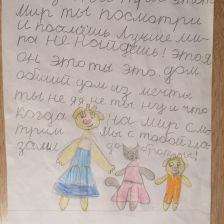 мир ты посмотри
и поймёшь лучше ми-
ра не найдёшь! этой
он это ты это дом
общий дом из мечты
ты не я я не ты ну и что
когда на мир смо
трим мы с тобой гла-
зами доброты!